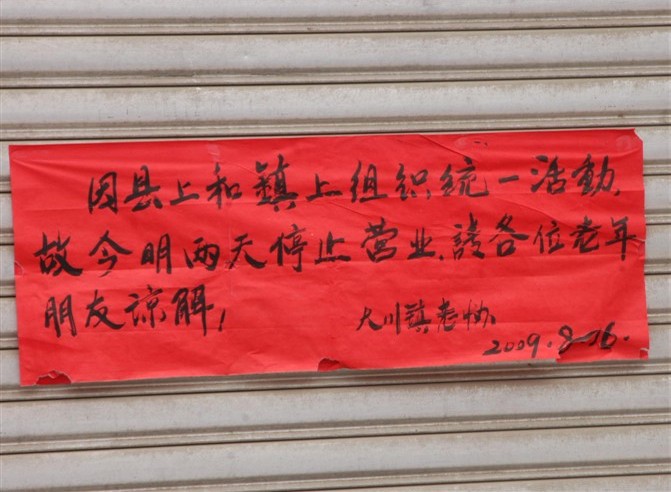 因县上和鎮上组织统一活動,
故今明两天停止营业,請各位老年
朋友谅解,
大川鎮老协
2009.8-16.